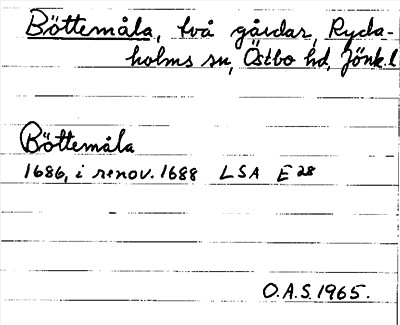 Böttemåla, två gårdar, Ryda-
holms sn, Östbo hd, Jönk.l
Böttemåla
1686, i renov. 1688 LSA E 28
O.A.S. 1965.